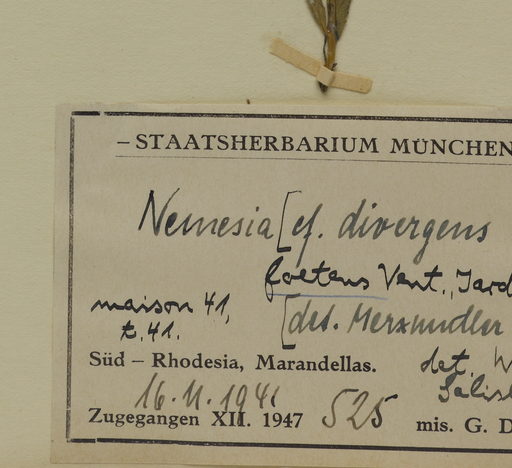 – STAATSHERBARIUM MÜNCHEN
Nemesia [cf. divergens
foetens Vent., Jard
maison 41,
t. 41.
[det. Merxmüller
Süd – Rhodesia, Marandellas. det. W
Salisb
16.11.1941
Zugegangen XII. 1947 525 mis. G. D